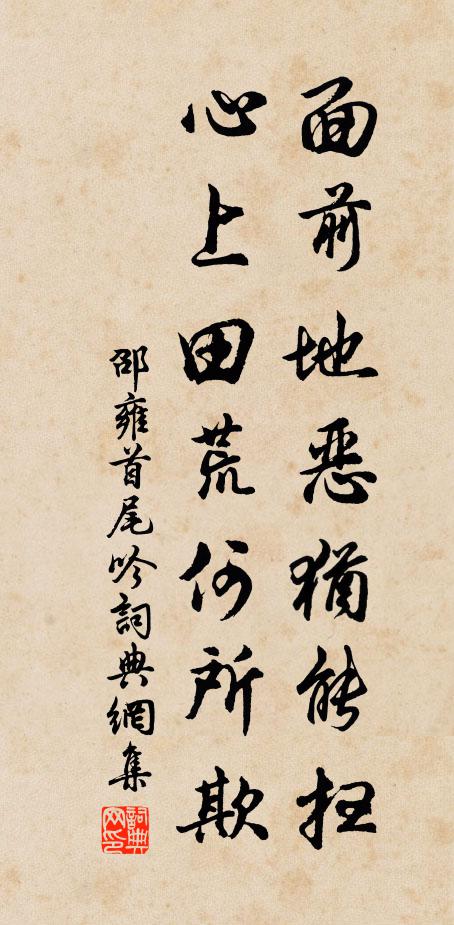 面前地恶猶能扫
心上田荒何所欺
邵雍首尾吟詞典網集
詞典
网印